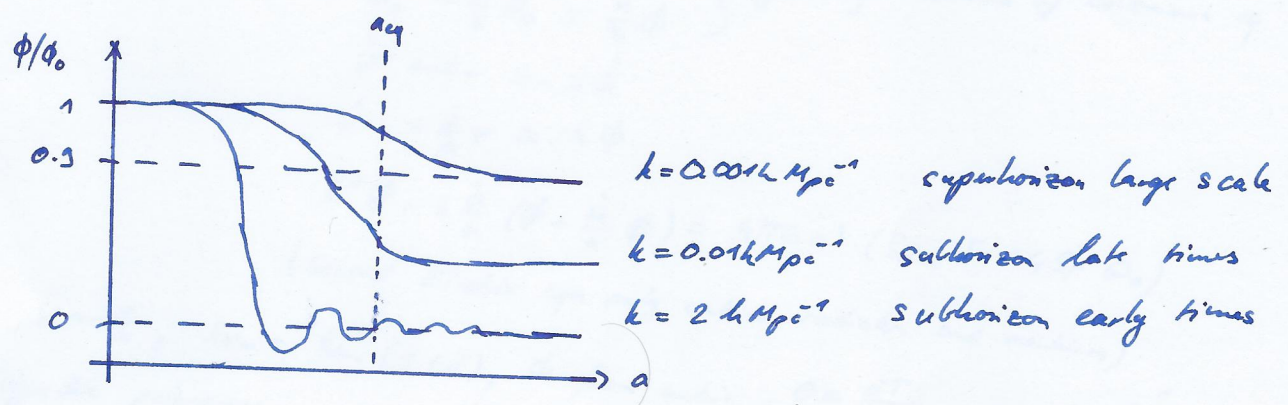 a_eq
ϕ/ϕ₀
1
0.9
k=0.001h Mpc⁻¹ superhorizon large scale
k=0.01h Mpc⁻¹ subhorizon late times
0
k=2 h Mpc⁻¹ subhorizon early times
a